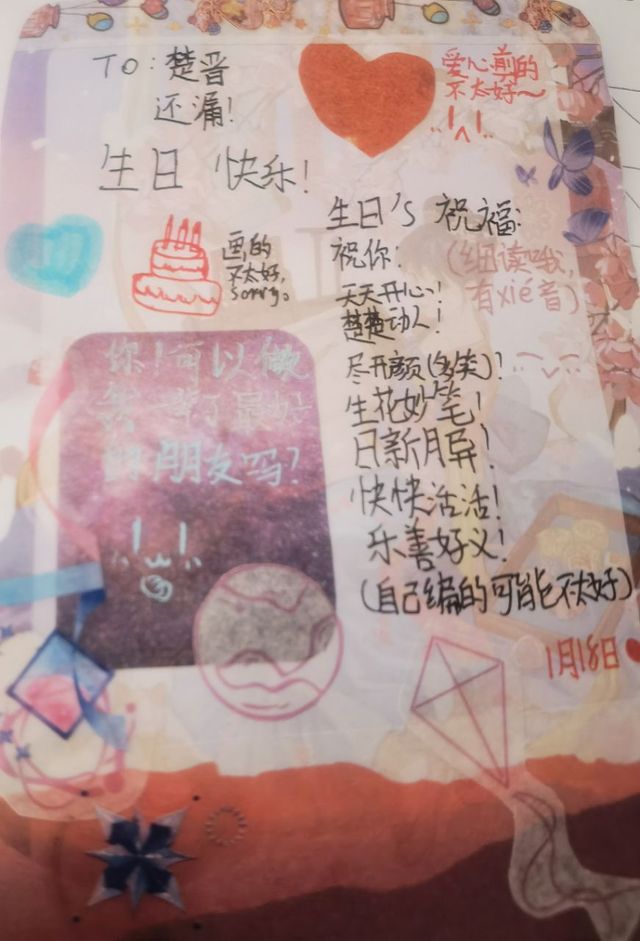 TO: 楚晋
还漏!
生日 快乐!
爱心剪的
不太好~
画的
不太好,
sorry。
生日's 祝福:
祝你:
(细读哦,
有xié音)
天天开心!
楚楚动人!
尽开颜(多笑)!
生花妙笔!
日新月异!
快快活活!
乐善好义!
(自己编的可能不太好)
1月18日
你!可以做
最好
的朋友吗?